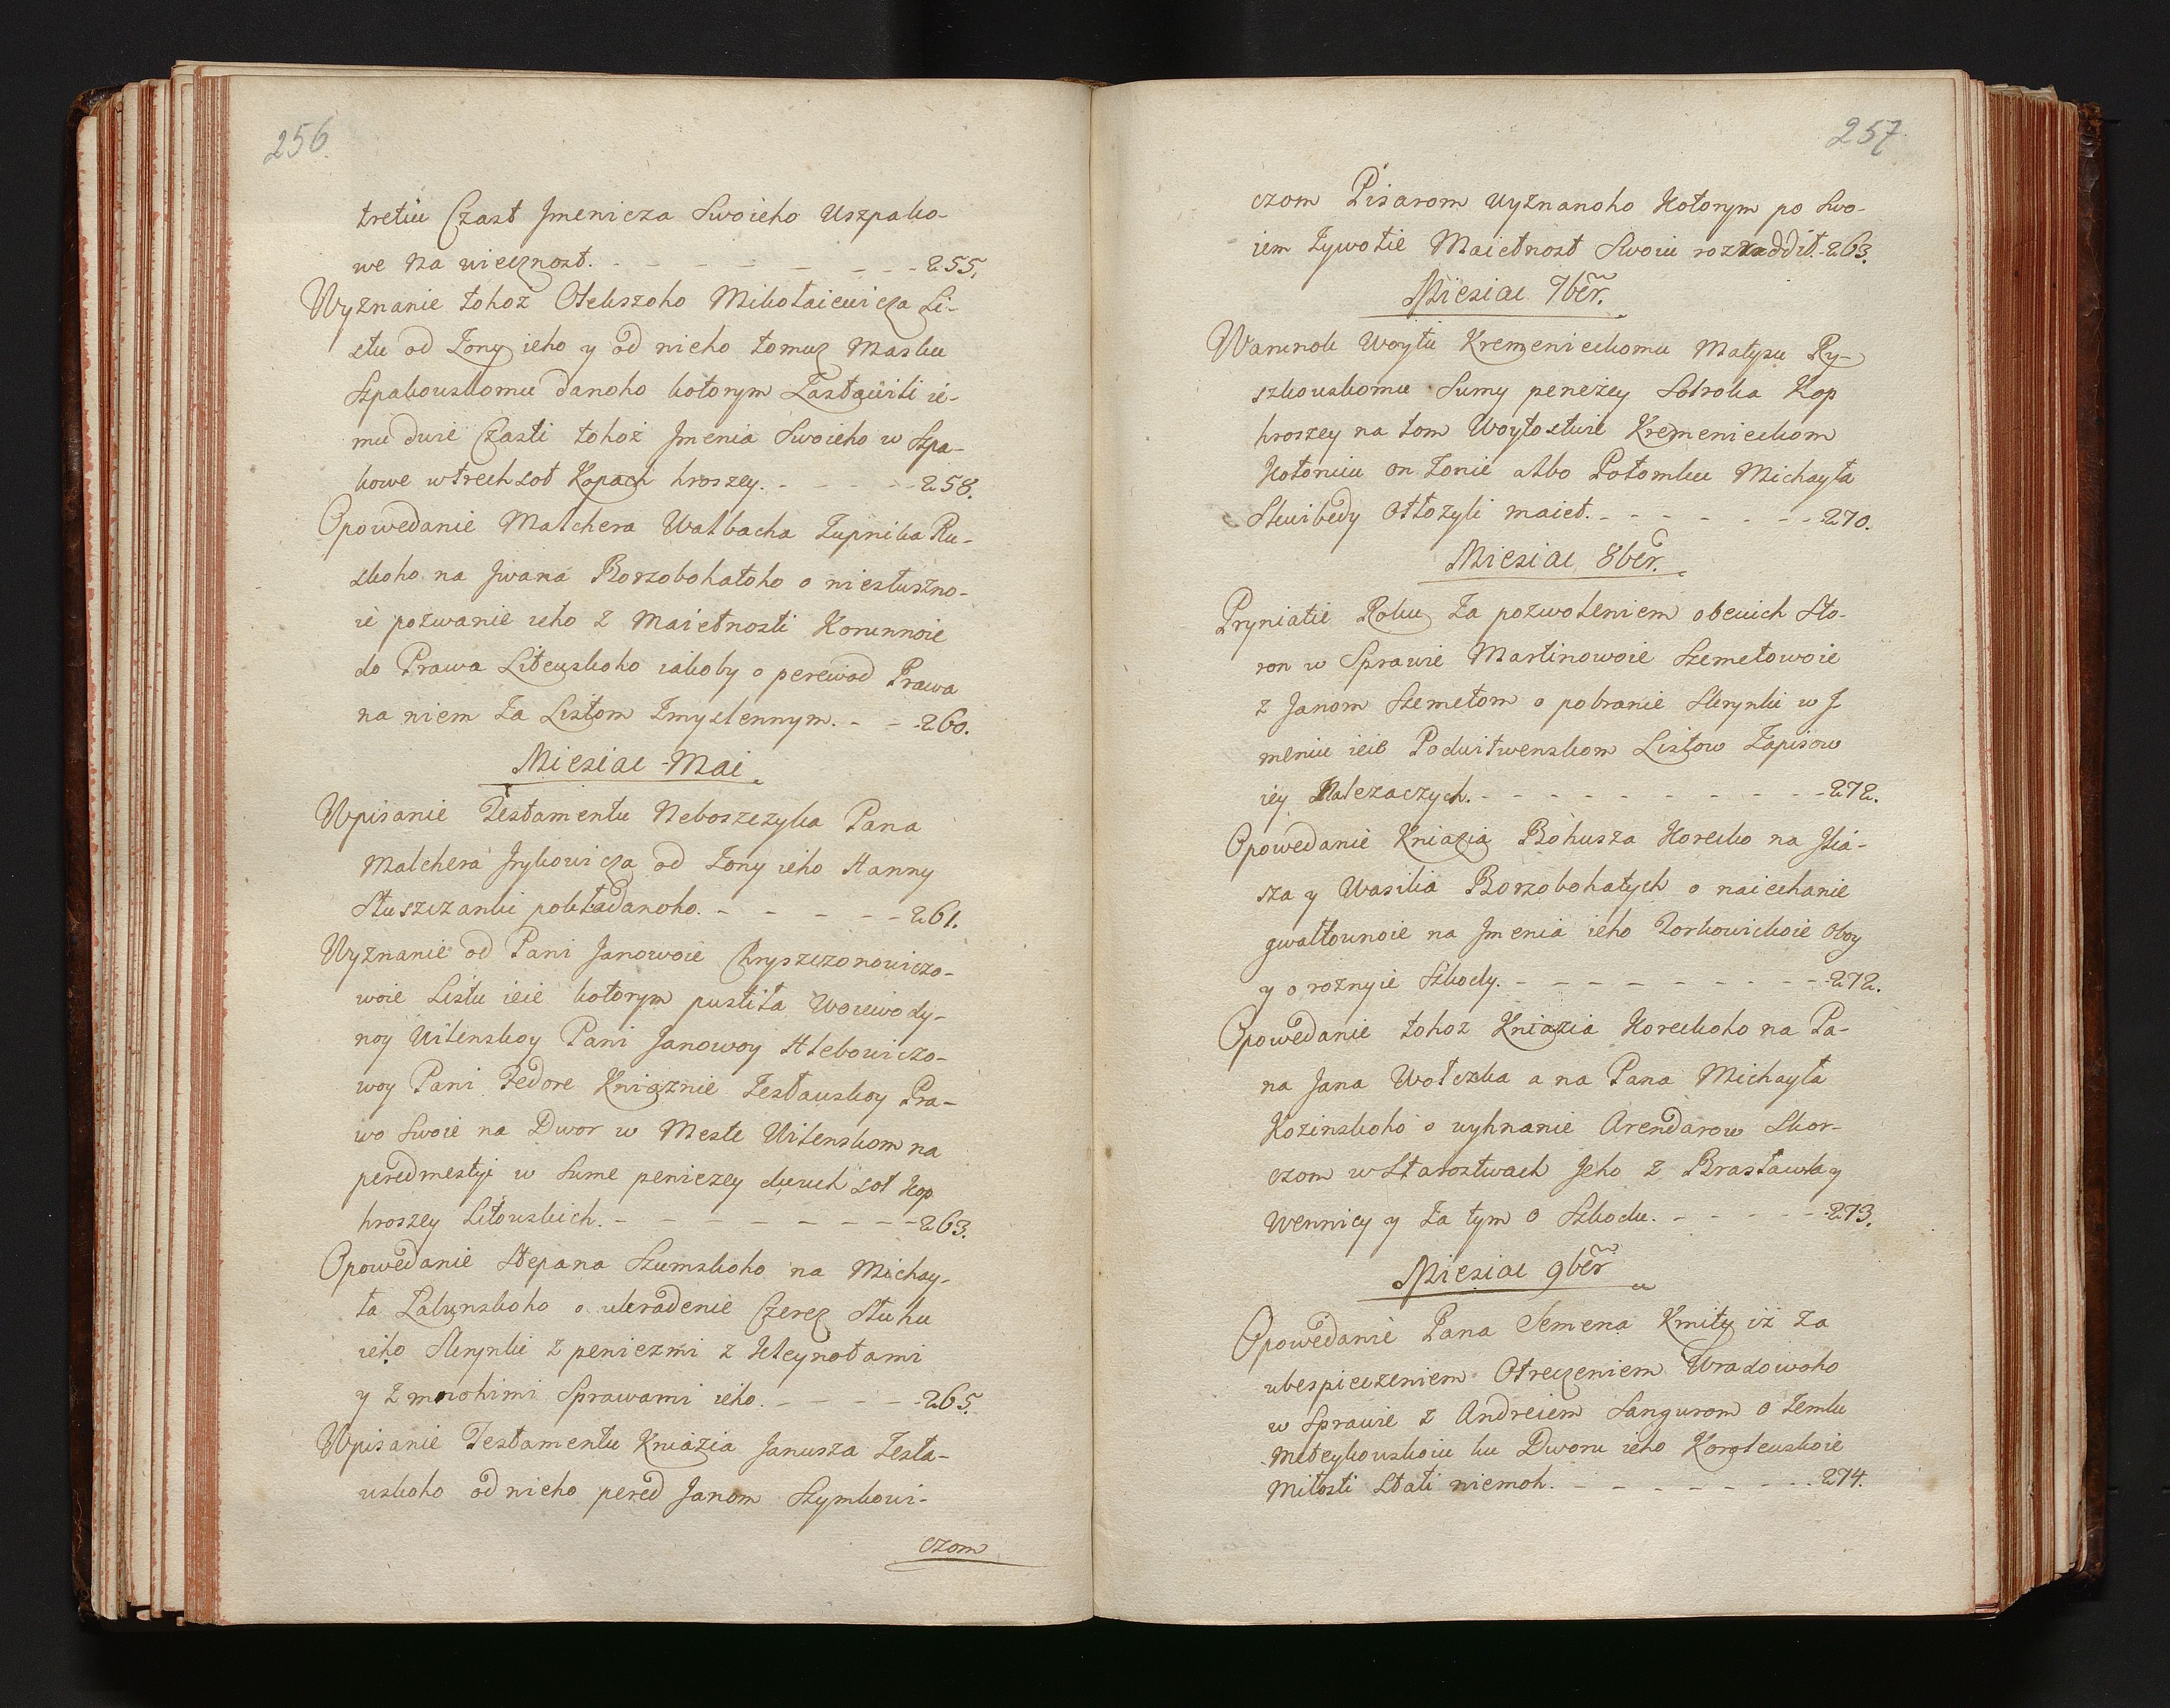 256
tretiu Czast Jmenicza Swoieho Uszpako-
we na wiecznost. - - - - - - - 255.
Wyznanie tohoż Olekszoho Mikołaiewicza Li-
stu od Zony ieho y od nieho tomuz Masku
Szpakouskomu danoho kotorym Zastawili ie-
mu dwie Czasti tohoż Jmenia Swoieho w Szpa-
kowe w trech sot Kopach hroszey. - - - - 258.
Opowedanie Malchera Walbacha Zupnika Ru-
skoho na Jwana Borzobohatoho o niesłuszno-
ie pozwanie ieho z Maietnosti Korunnoie
do Prawa Liteuskoho iakoby o perewod Prawa
na niem Za Listom Zmyslennym. - - - 260.
Miesiac Mai
Wpisanie Testamentu Neboszczyka Pana
Malchera Jrykowicza od Zony ieho Hanny
Słuszczanki pokładanoho. - - - - - 261.
Wyznanie od Pani Janowoie Chryszczonowiczo-
woie Listu ieie kotorym pustiła Woiewody-
noy Wilenskoy Pani Janowoy Hlebowiczo-
woy Pani Fedore Kniaznie Zesławskoy Pra-
wo Swoie na Dwor w Meste Wilenskom na
peredmestyi w Sume penieży dwuch sot Kop
hroszey Litouskich. - - - - - - - 263.
Opowedanie Stepana Szumskoho na Michay-
ła Łabunskoho o ukradenie Czerez Słuhu
ieho Skrynki z peniezmi z Kleynotami
y z mnohimi Sprawami ieho. - - - - 265.
Wpisanie Testamentu Kniazia Janusza Zesła-
uskoho od nieho pered Janom Szymkowi-
czom
257
czom Pisarom wyznanoho Kotorym po Swo-
iem Zywotie Maietnost Swoiu rozraddił. - 263.
Miesiac 7ber.
Warunok Woytu Kremenieckomu Matysu Ry-
szkouskomu Sumy penežey Sotroka Kop
hroszey na tom Woytostwie Kremenieckom
Kotoruiu on Zonie albo Potomku Michayła
Skwibedy Otłozyli maiet. - - - - - - - 270.
Miesiac 8ber.
Pryniatie Roku Za pozwoleniem obeuich Sto-
ron w Sprawie Martinowoie Szemetowoie
z Janom Szemetom o pobranie Skrynki w J
meniu ieie Poduitwenskom Listow Zapisow
iey Nalezaczych. - - - - - - - - - 272.
Opowedanie Kniazia Bohusza Korecko na Jlia-
sza y Wasilia Borzobohatych o naiechanie
gwałtounoie na Jmenia ieho Torkowickoie Oboy
y o roznyie Szkody. - - - - - - - - 272.
Opowedanie tohoz Kniazia Koreckoho na Pa-
na Jana Wołczka a na Pana Michayła
Kozinskoho o wyhnanie Arendarow Skor-
czom w Starostwach Jeho z Brasławla y
Wennicy y Za tym o Szkodu. - - - - - 273.
Miesiac 9ber
Opowedanie Pana Semena Kmity iż Za
ubespieczeniem Otreczeniem Uradowoho
w Sprawie z Andreiem Sangurom o Zemlu
Meteykouskoiu ku Dworu ieho Koroleuskoie
Miłosti Stati niemoh. - - - - - - - 274.